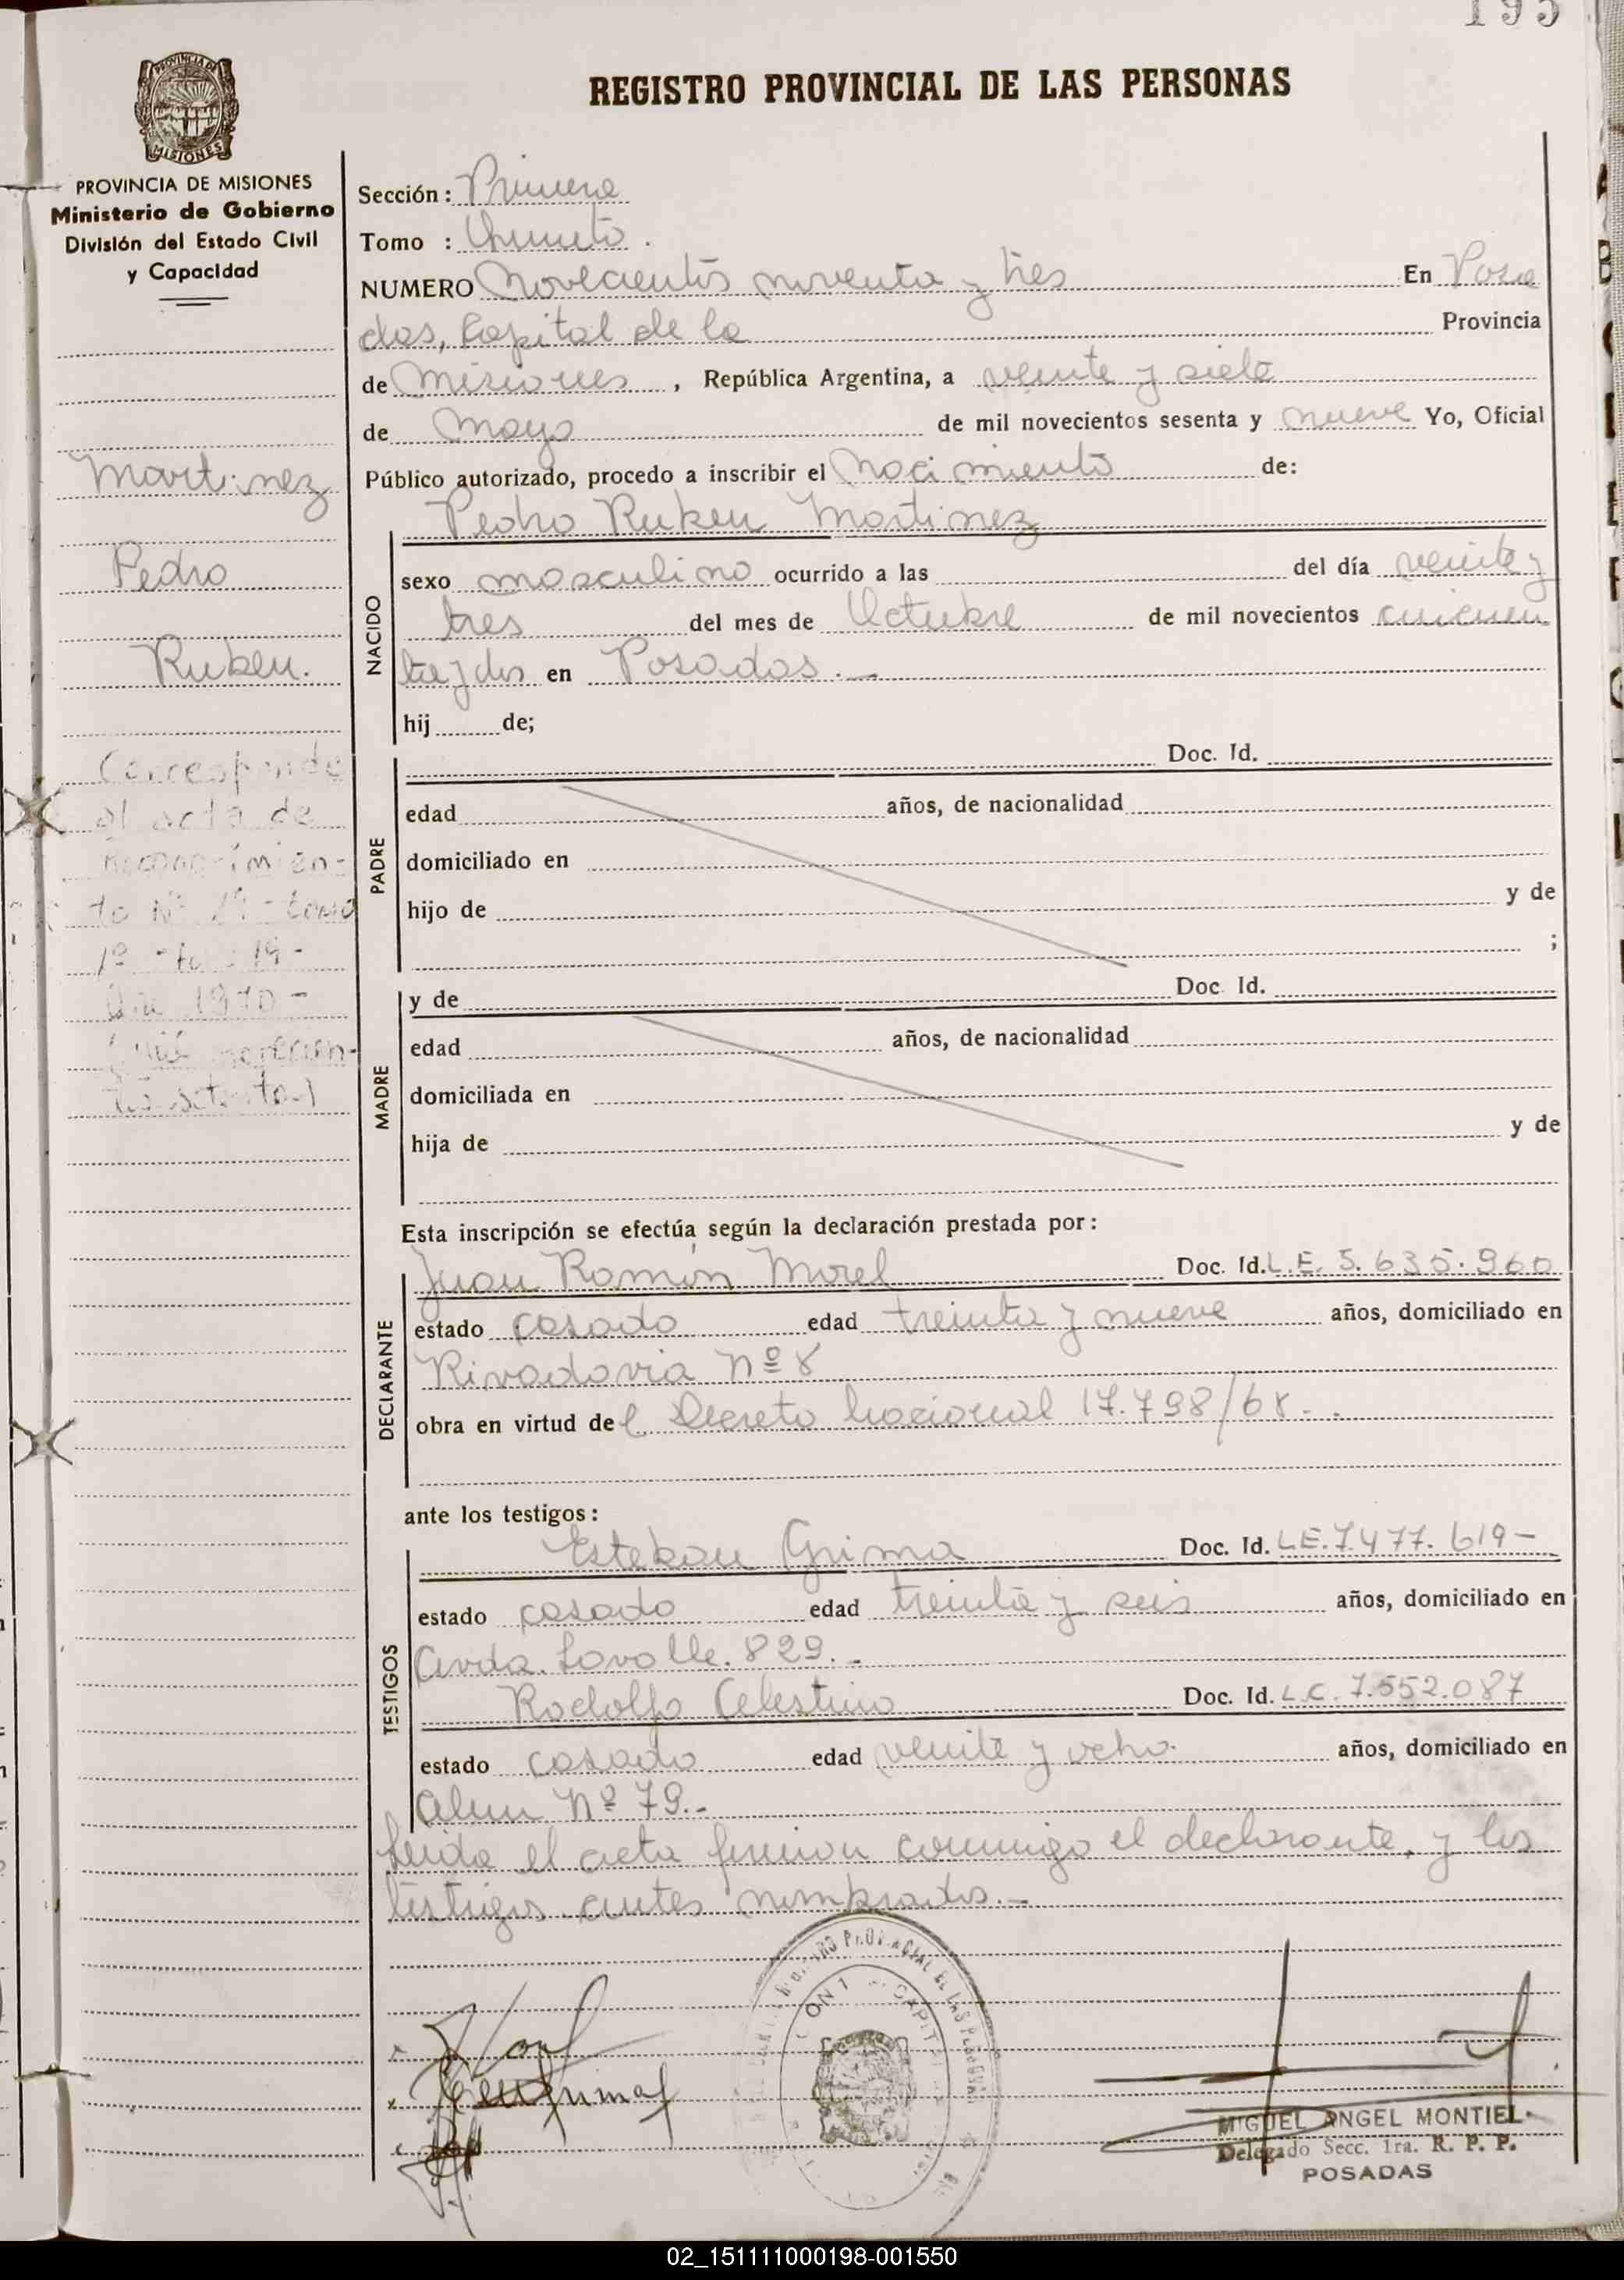 195
REGISTRO PROVINCIAL DE LAS PERSONAS
PROVINCIA DE MISIONES
Ministerio de Gobierno
División del Estado Civil
y Capacidad
Martinez
Pedro
Ruben.
Corresponde
al acta de
Reconocimien-
to Nº 19 - tomo
1º - fº 19 -
Año 1970 -
Sección: Primera
Tomo :
NUMERO Novecientos noventa y tres En Posa
das, Capital de la Provincia
de Misiones, República Argentina, a veinte y siete
de Mayo de mil novecientos sesenta y nueve Yo, Oficial
Público autorizado, procedo a inscribir el Nacimiento de:
Pedro Ruben Martinez
NACIDO
sexo masculino ocurrido a las del día veinte y
tres del mes de Octubre de mil novecientos cincuen
ta y dos en Posadas.-
hij de;
PADRE
Doc. Id.
edad años, de nacionalidad
domiciliado en
hijo de y de
;
MADRE
y de Doc. Id.
edad años, de nacionalidad
domiciliada en
hija de y de
Esta inscripción se efectúa según la declaración prestada por:
DECLARANTE
Juan Ramón Morel Doc. Id. L.E. 5.635.960
estado casado edad treinta y nueve años, domiciliado en
Rivadavia Nº 8
obra en virtud del Decreto Nacional 17.798/68.-
ante los testigos:
TESTIGOS
Esteban Grima Doc. Id. L.E. 7.477.619-
estado casado edad treinta y seis años, domiciliado en
Avda. Lavalle. 829.-
Rodolfo Celestino Doc. Id. L.C. 7.552.087
estado casado edad veinte y ocho. años, domiciliado en
Alem Nº 79.-
Leida el acta firman conmigo el declarante, y los
testigos antes nombrados.-
MIGUEL ANGEL MONTIEL
Delegado Secc. 1ra. R. P. P.
POSADAS
02_151111000198-001550